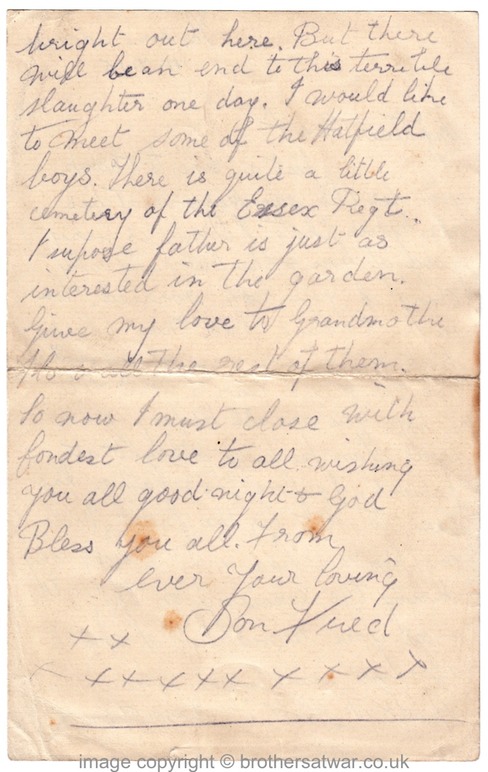 bright out here. But there
will be an end to this terrible
slaughter one day. I would like
to meet some of the Hatfield
boys. There is quite a little
cemetery of the Essex Regt.
I supose father is just as
interested in the garden.
Give my love to Grandmothe
all the rest of them.
So now I must close with
fondest love to all wishing
you all good night & God
Bless you all. From
ever Your loving
Son Fred
x x
x x x x x x x x x x
image copyright © brothersatwar.co.uk